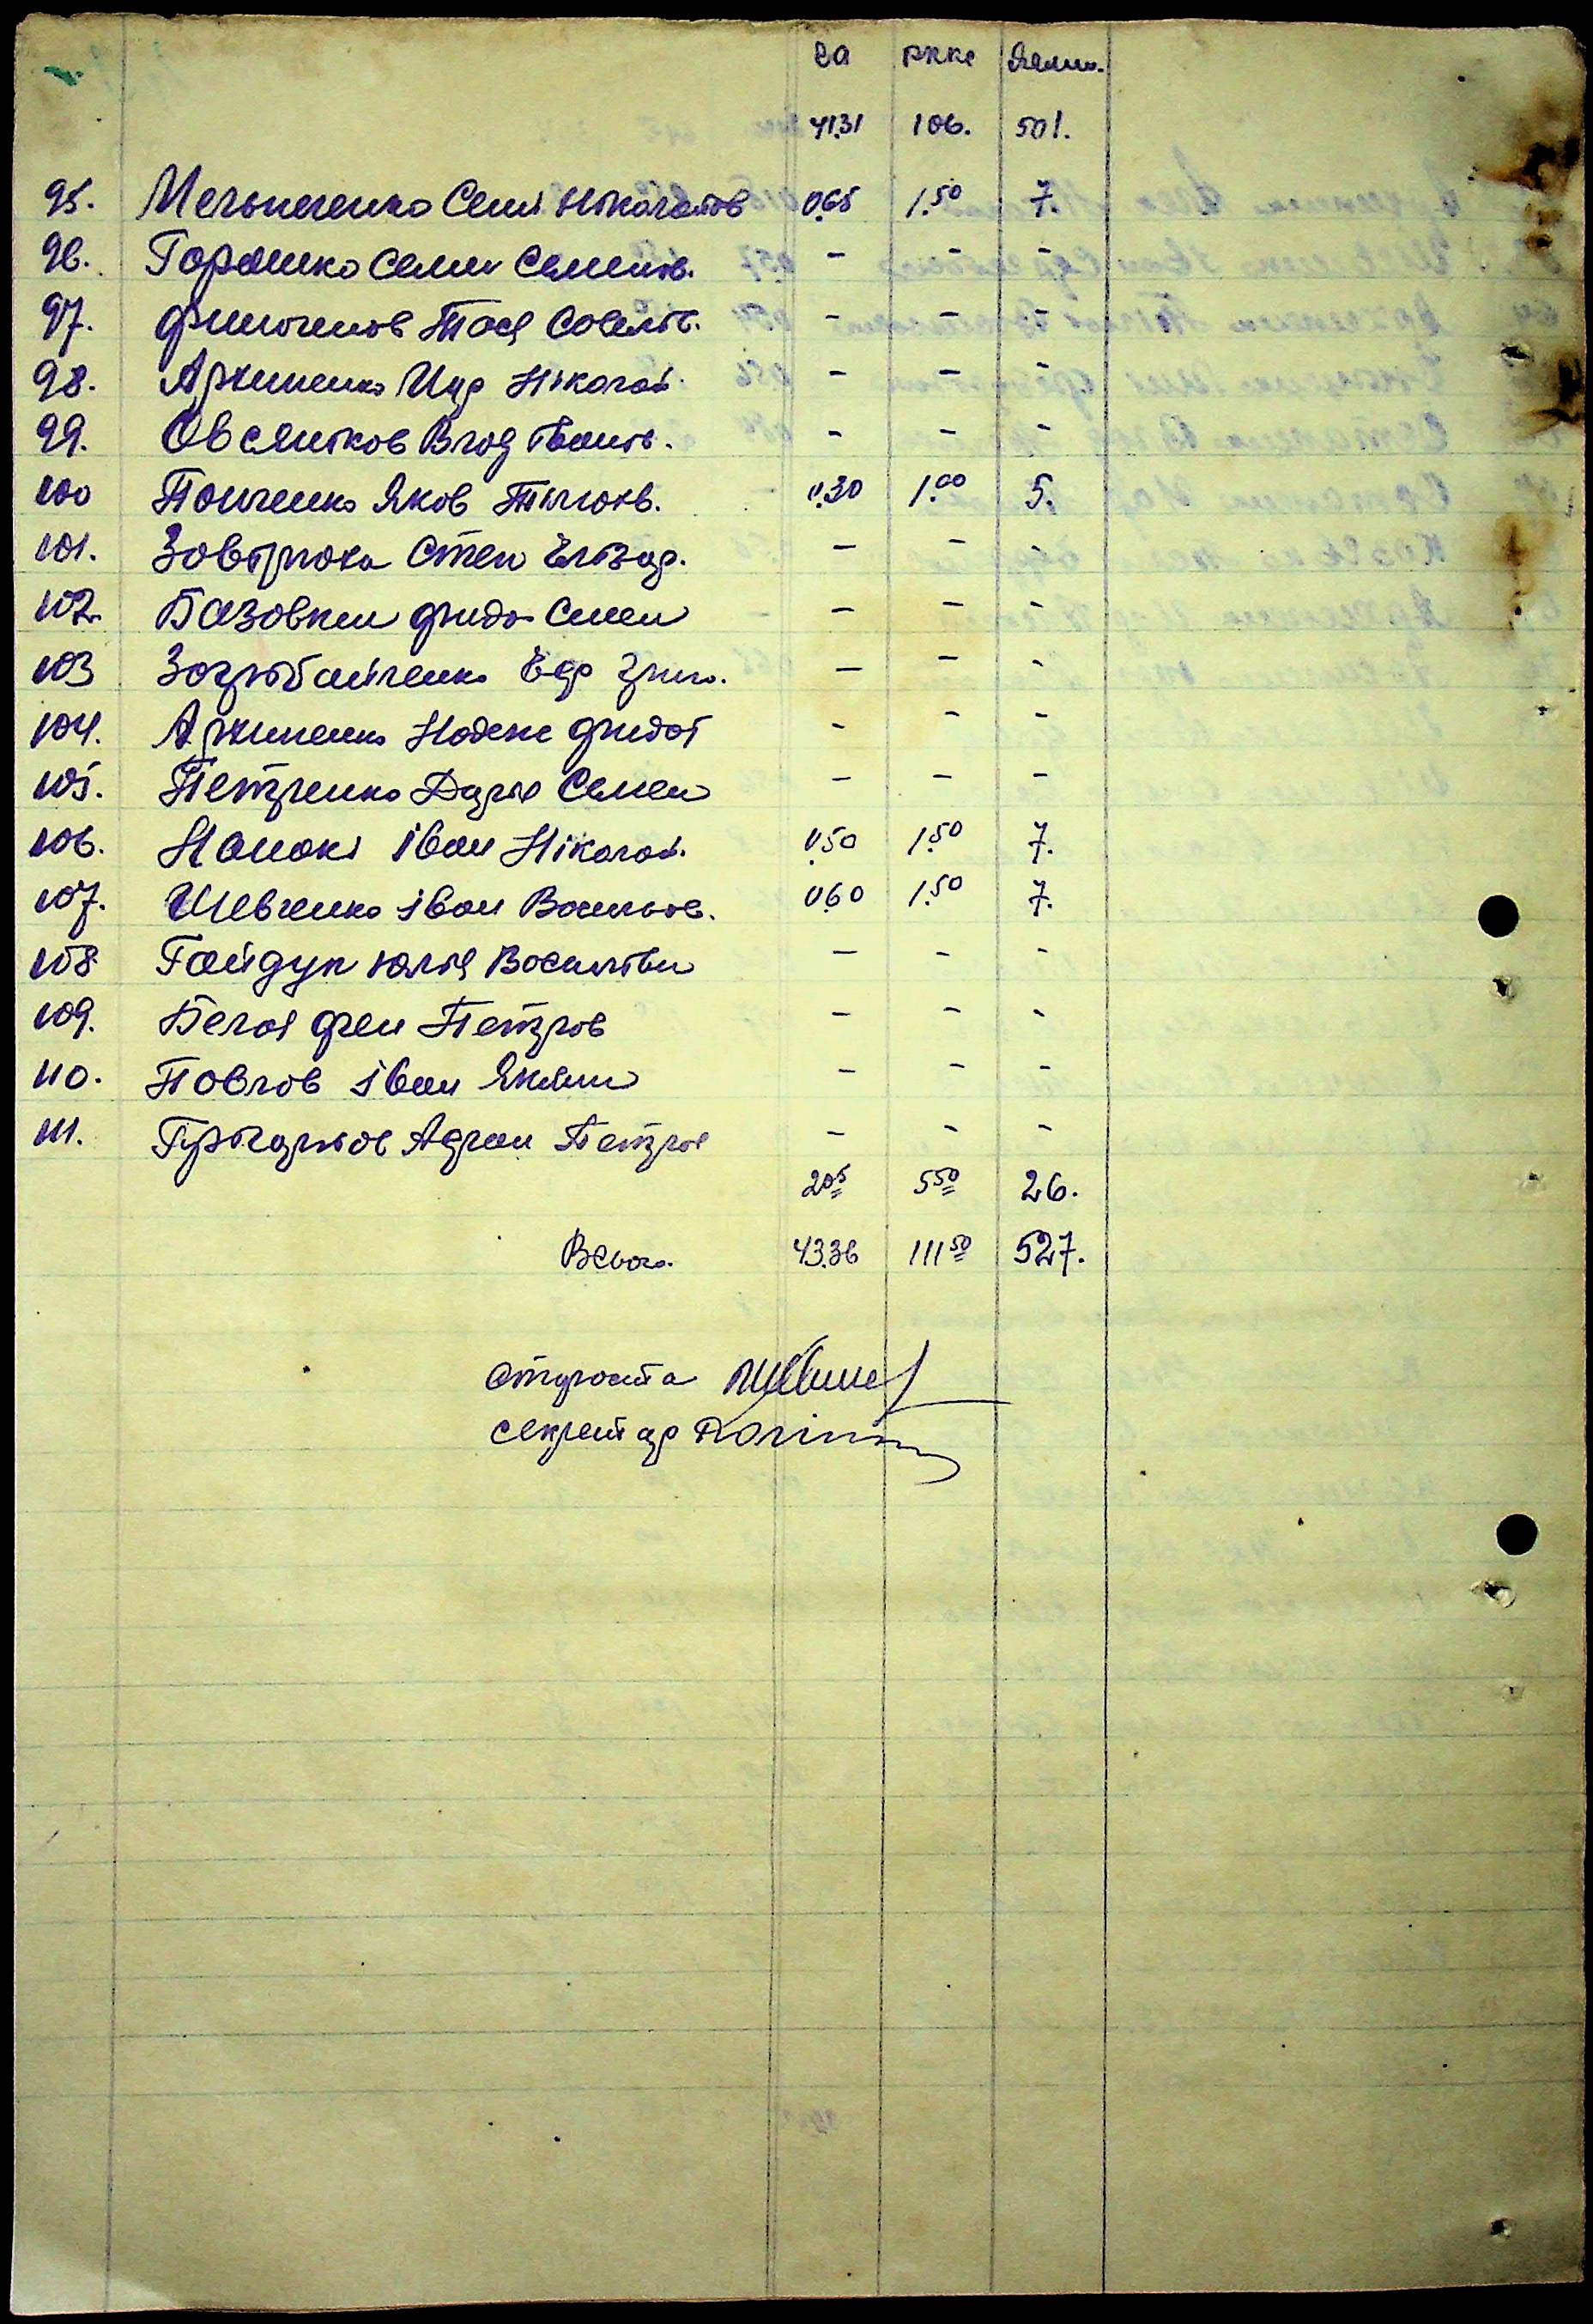 га
41.31 106. 501.
95. Мельниченко Семі Ніколаєв 0.65 1.50 7.
96. Горошко Семен Семенов. - - -
97. Филоненков Тося Совелів. - - -
98. Архипенко Ицр Ніколай. - - -
99. Овсянков Влод Іванів. - - -
100 Понченко Яков 0.30 1.00 5.
101. Завірюха Степ Елізар. - - -
102. Базовкин Федо Семен - - -
103 Загребайченко Едр Григ. - - -
104. Архипенко Надеже Федот - - -
105. Петренко Дарья Семен - - -
106. Іван Ніколай. 0.50 1.50 7.
107. Шевченко Іван Васильов. 0.60 1.50 7.
108 Гайдук Юлія Васильівн - - -
109. Белоя Фен Петров - - -
110. Повлов Іван Яким - - -
111. Адрон Петров - - -
2.05 5.50 26.
Всього. 43.36 111.50 527.
Староста
Секретар